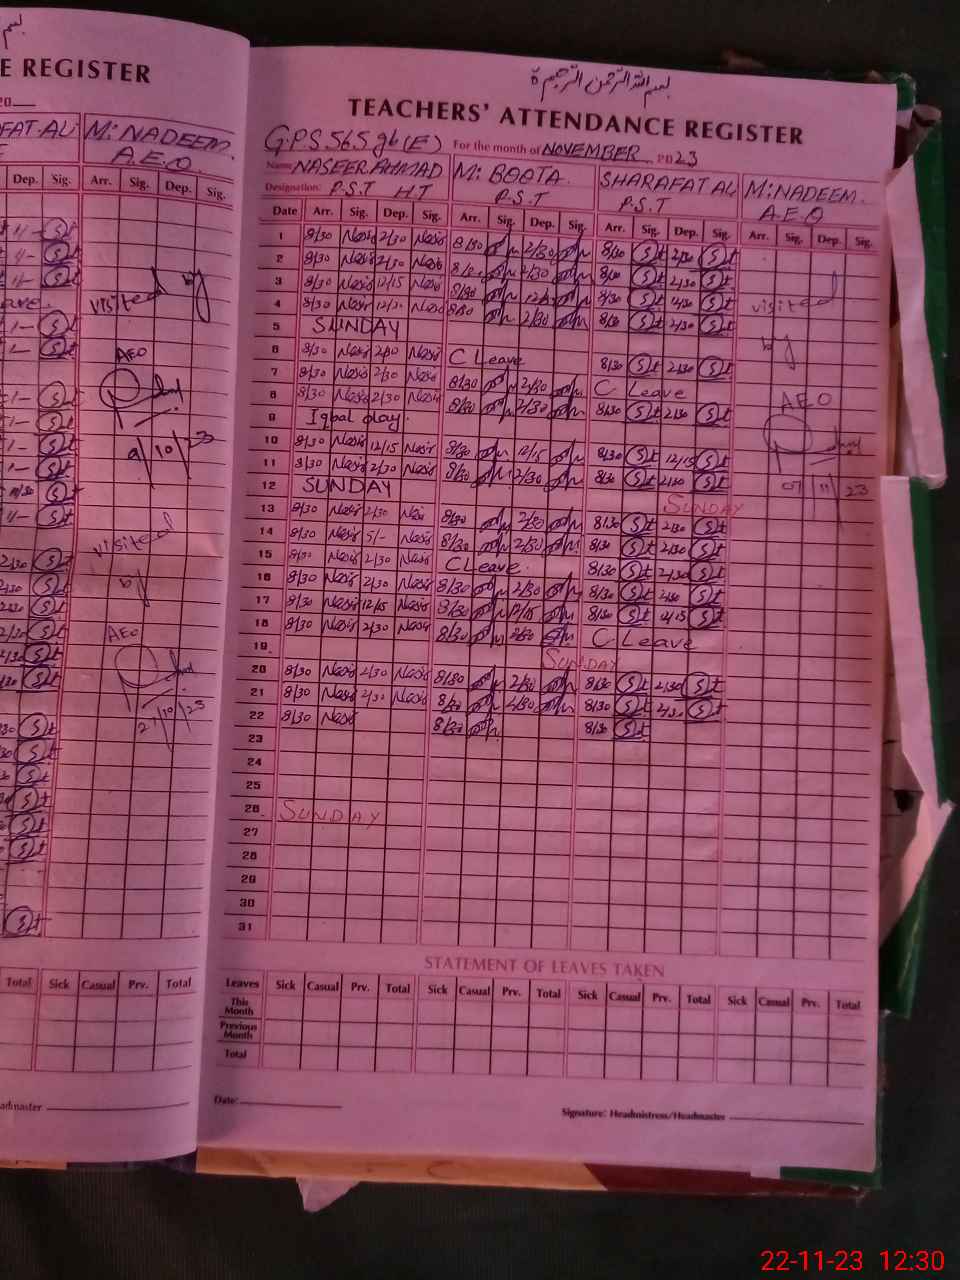 بسم اللہ الرحمن الرحیم
E REGISTER
TEACHERS' ATTENDANCE REGISTER
20
G.P.S 565 gb (E) For the month of NOVEMBER 2023
FAT ALI M: NADEEM.
A.E.O
Name: NASEER AHMAD M: BOOTA. SHARAFAT AL M: NADEEM.
Designation: P.S.T H.T P.S.T P.S.T A.E.O
Dep. Sig. Arr. Sig. Dep. Sig.
Date Arr. Sig. Dep. Sig. Arr. Sig. Dep. Sig. Arr. Sig. Dep. Sig. Arr. Sig. Dep. Sig.
1 8/30 Nasir 2/30 Nasir 8/30 2/30 8/30 2/30
2 8/30 Nasir 2/30 Nasir 8/30 2/30 8/30 2/30
3 8/30 Nasir 12/15 Nasir 8/30 12/15 8/30
4 8/30 Nasir 12/30 Nasir 8/30 2/30 8/30 2/30
5 SUNDAY
6 8/30 Nasir 2/30 Nasir C Leave 8/30 2/30
7 8/30 Nasir 2/30 Nasir 8/30 2/30 C Leave
8 8/30 Nasir 2/30 Nasir 8/30 2/30 8/30 2/30
9 Iqbal day.
10 8/30 Nasir 12/15 Nasir 8/30 12/15 8/30 12/15
11 8/30 Nasir 2/30 Nasir 8/30 2/30 8/30 2/30
12 SUNDAY SUNDAY
13 8/30 Nasir 2/30 8/30 2/30 8/30 2/30
14 8/30 Nasir 5/- Nasir 8/30 2/30 8/30 2/30
15 8/30 Nasir 2/30 Nasir C Leave. 8/30 2/30
16 8/30 Nasir 2/30 Nasir 8/30 2/30 8/30 2/30
17 8/30 Nasir 12/15 Nasir 8/30 12/15 8/30 12/15
18 8/30 Nasir 2/30 Nasir 8/30 2/30 C Leave
19 SUNDAY
20 8/30 Nasir 2/30 Nasir 8/30 2/30 8/30 2/30
21 8/30 Nasir 2/30 Nasir 8/30 2/30 8/30 2/30
22 8/30 Nasir 8/30 8/30
23
24
25
26 SUNDAY
27
28
29
30
31
visited by
AEO
9/10/23
visited
by
AEO
21/10/23
visited
by
AEO
07/11/23
STATEMENT OF LEAVES TAKEN
Total Sick Casual Prv. Total
Leaves Sick Casual Prv. Total Sick Casual Prv. Total Sick Casual Prv. Total Sick Casual Prv. Total
This Month
Previous Month
Total
admaster
Date:
Signature: Headmistress/Headmaster
22-11-23 12:30